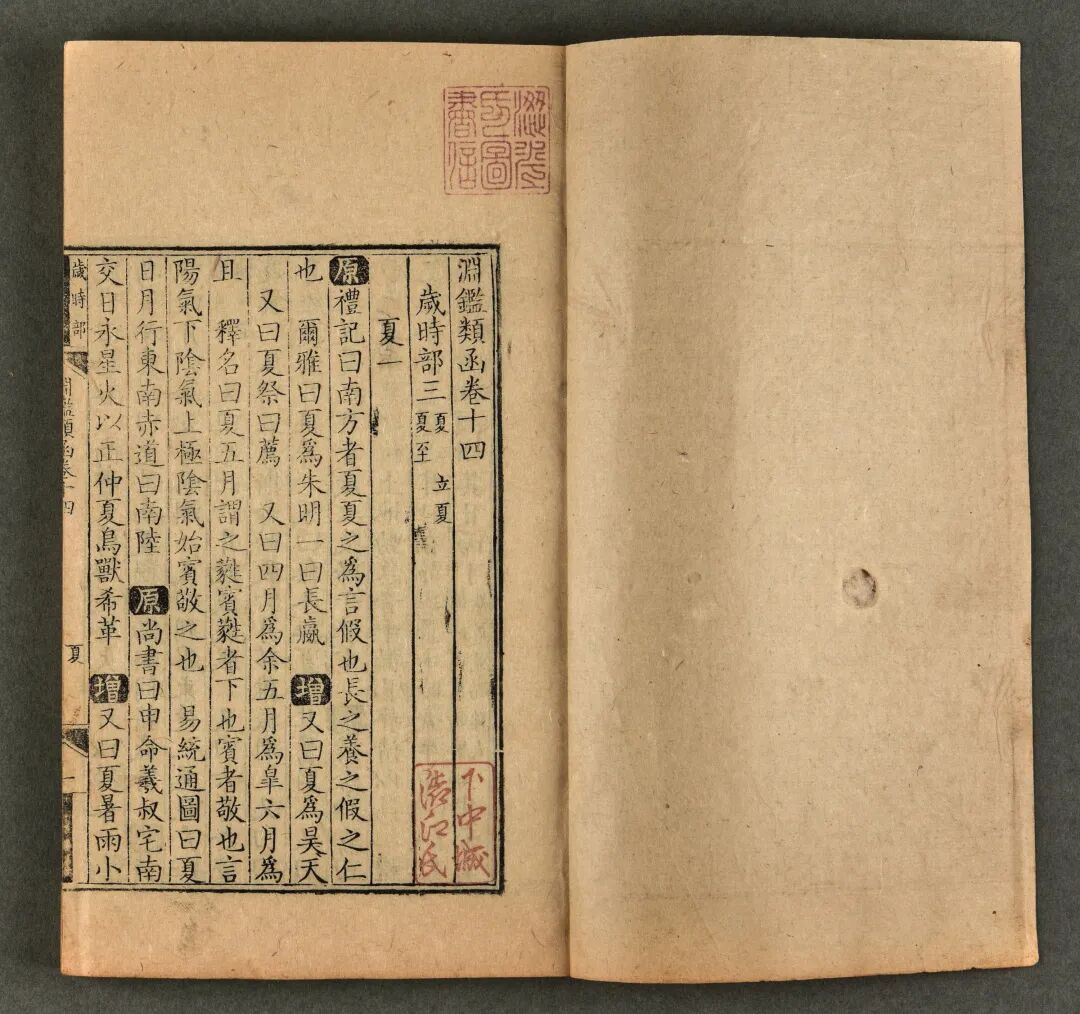 淵鑑類函卷十四
歲時部三 夏 立夏
夏至
夏一
原禮記曰南方者夏夏之為言假也長之養之假之仁
也 爾雅曰夏為朱明一曰長嬴 增又曰夏為昊天
又曰夏祭曰薦 又曰四月為余五月為皐六月為
且 釋名曰夏五月謂之蕤賓蕤者下也賓者敬也言
陽氣下陰氣上極陰氣始賓敬之也 易統通圖曰夏
日月行東南赤道曰南陸 原尚書曰申命羲叔宅南
交日永星火以正仲夏鳥獸希革 增又曰夏暑雨小
歲時部
淵鑑類函卷十四 夏 一